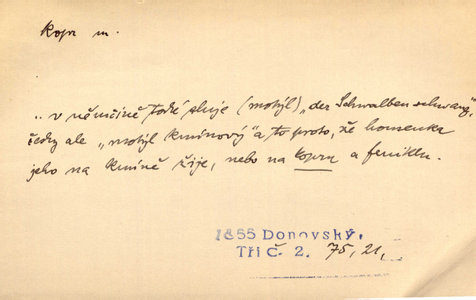 kopr m.
.. v němčině todě sluje (motýl) „der Schwalbenschwanz",
česky ale „motýl kmínový" a to proto, že housenka
jeho na kmíně žije, nebo na kopru a feniklu.
1855 Donovský,
Tři č. 2. 75, 21,